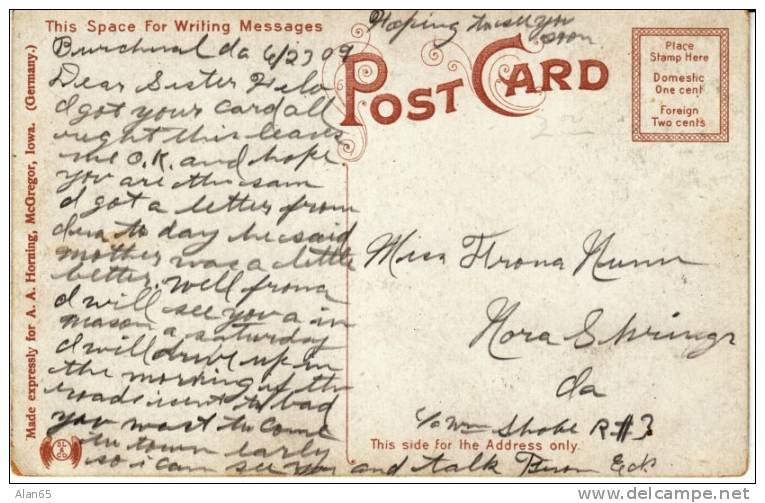 This Space For Writing Messages
Hoping to see you
soon
6/23 09
Dear Sister
I got your card all
right this leaves
me O.K. and hope
you are the sam
I got a letter from
to day he said
mother was a little
better. Well frona
I will see you a in
mason a saturday
I will drive up in
the morning if the
roads isent to bad
you want to come
in town early
so i can see you and talk
POST CARD
Place
Stamp Here
Domestic
One cent
Foreign
Two cents
Miss Frona Nunn
Nora Springs
Ia
R#3
This side for the Address only.
Made expressly for A. A. Horning, McGregor, Iowa. (Germany.)
SL
& CO.
Alan65
www.delcampe.net